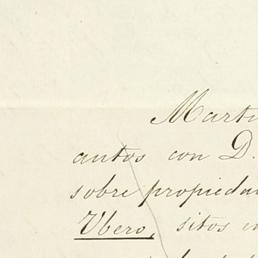 Marti
autos con D.
sobre propiedad
Ubero, sitos en